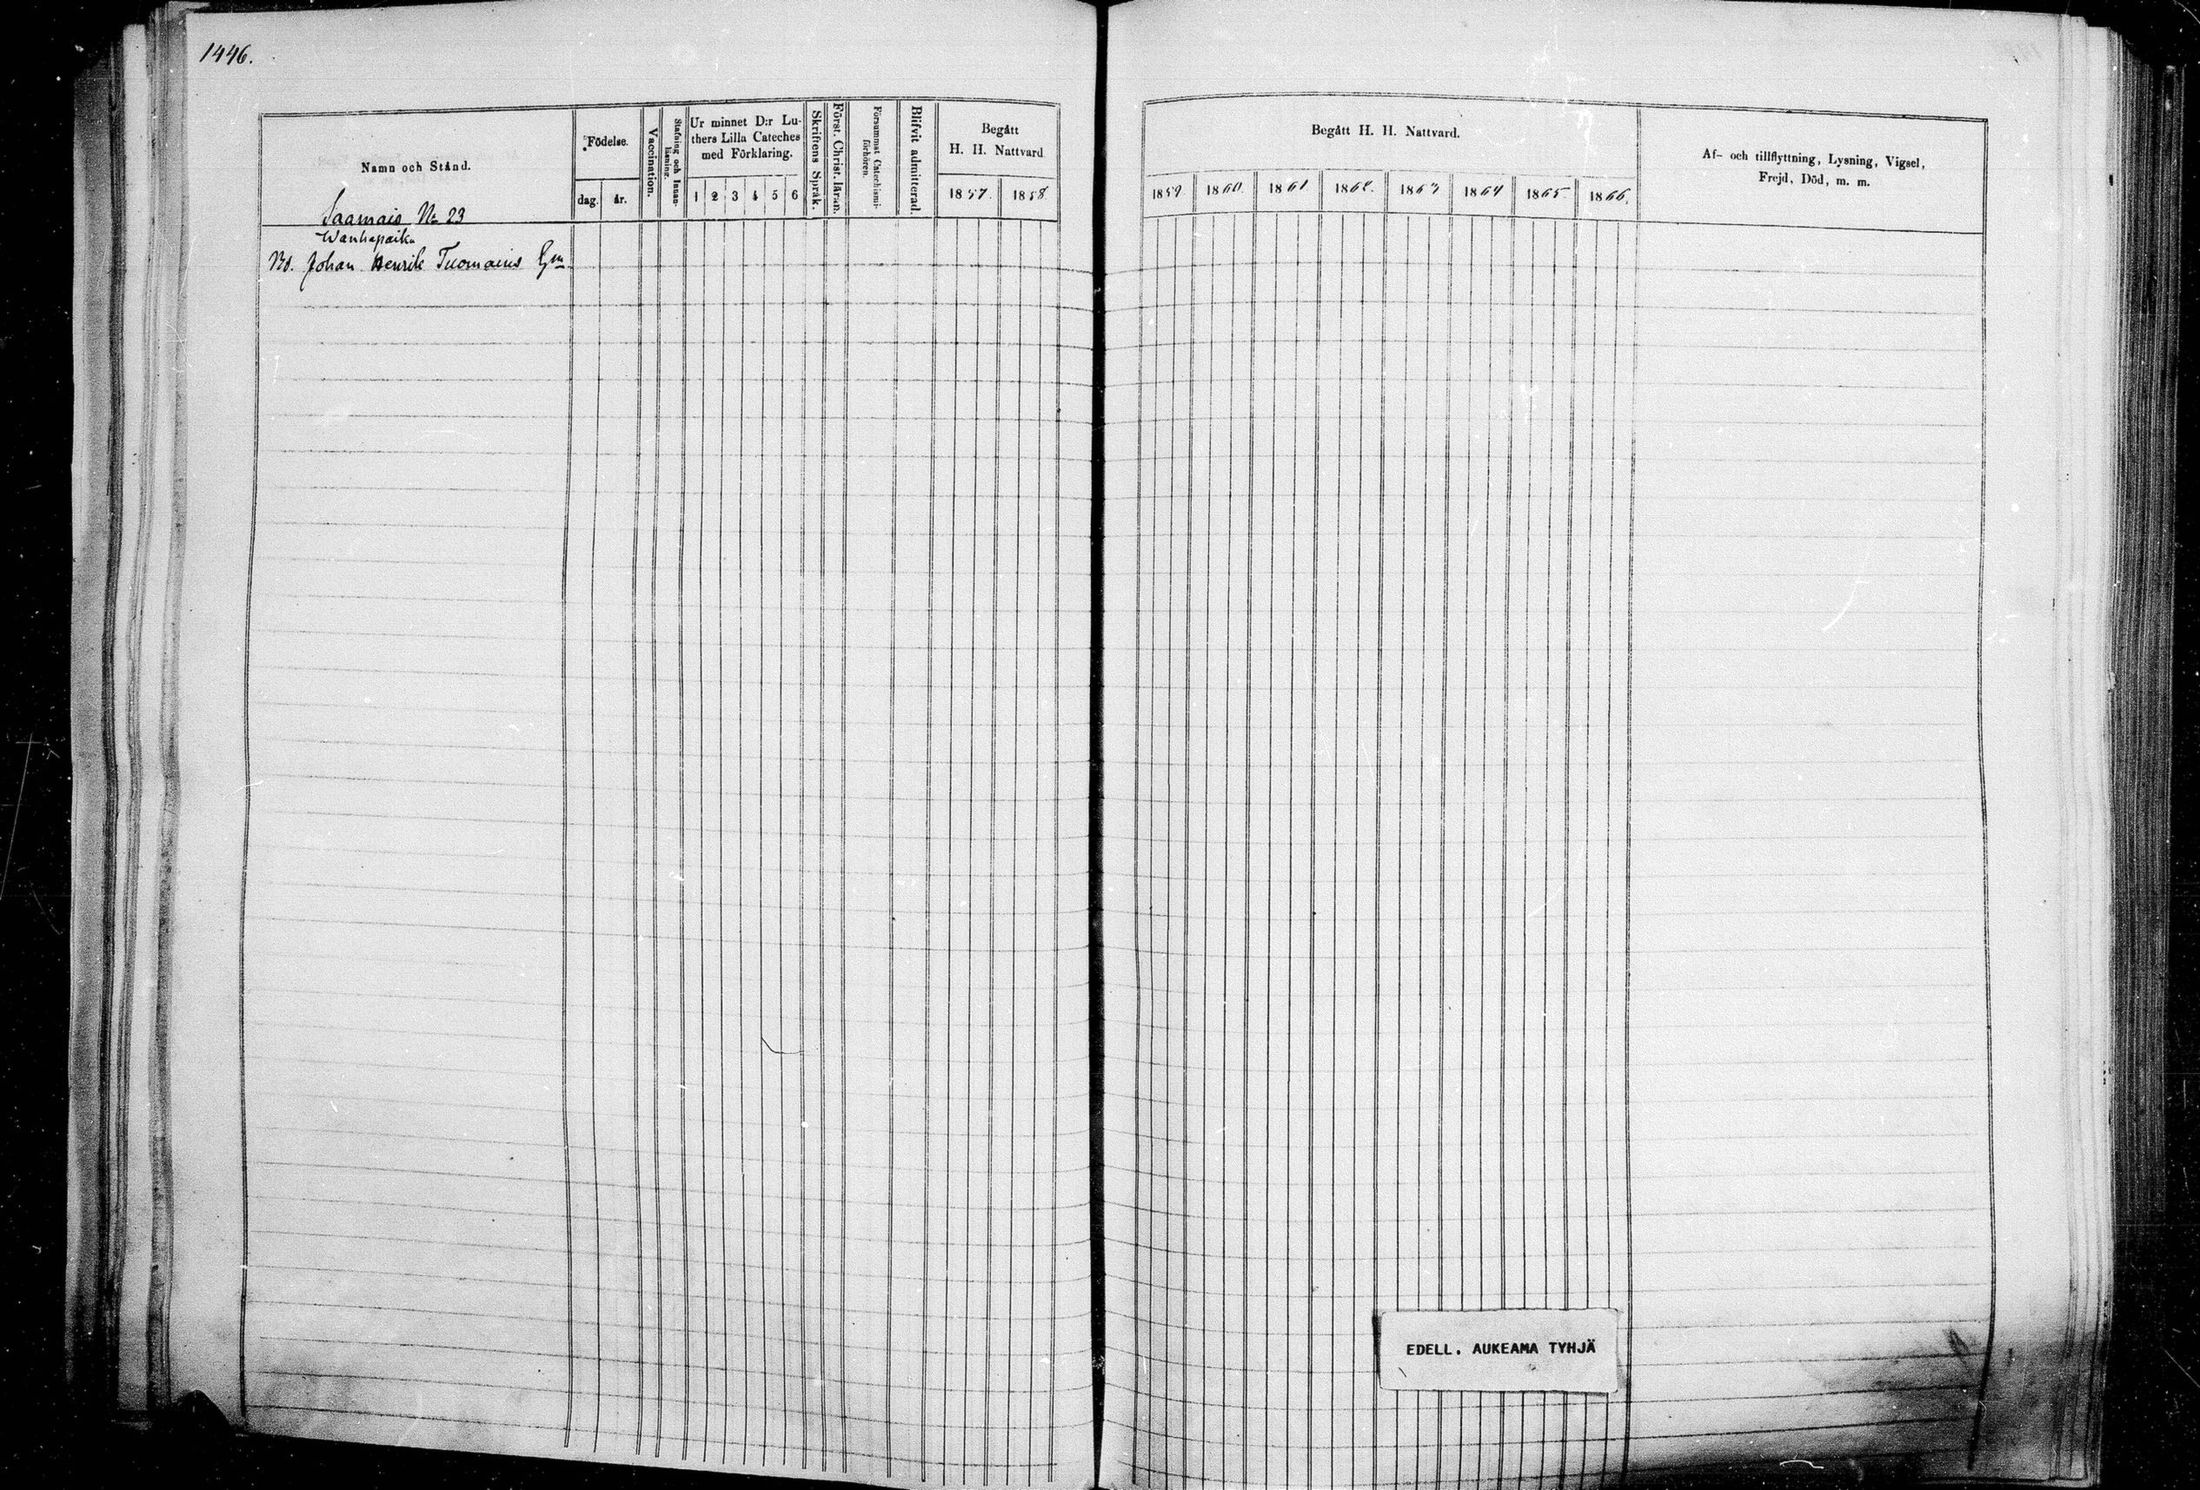 1446.
Namn och Stånd.
Saamais No 23
Födelse.
dag.
år.
Vaccination.
Stafning och Innan-
läsning.
Ur minnet D:r Lu-
thers Lilla Cateches
med Förklaring.
1 2 3 4 5 6
Skriftens Språk.
Först. Christ. läran.
Försummat Catechismi-
förhören.
Blifvit admitterad.
Begått
H. H. Nattvard
1857. 1858.
Begått H. H. Nattvard.
1859. 1860. 1861 1862. 1863 1864 1865. 1866.
Af- och tillflyttning, Lysning, Vigsel,
Frejd, Död, m. m.
Wanhapaiku
Bd. Johan Henrik Tuomainis
EDELL. AUKEAMA TYHJÄ